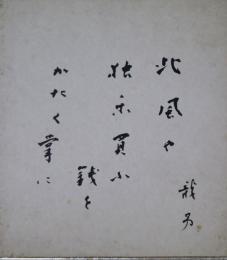 北風や
独楽買ふ
銭を
かたく掌に